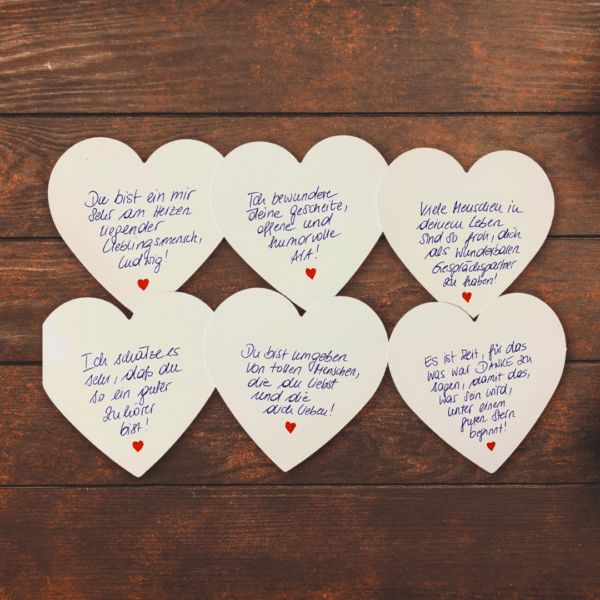 Du bist ein mir
sehr am Herzen
liegender
Lieblingsmensch,
Ludwig!
Ich bewundere
deine gescheite,
offene und
humorvolle
Art!
Viele Menschen in
deinem Leben
sind so froh, dich
als wunderbaren
Gesprächspartner
zu haben!
Ich schätze es
sehr, daß du
so ein guter
Zuhörer
bist!
Du bist umgeben
von tollen Menschen,
die du liebst
und die
dich lieben!
Es ist Zeit, für das
was war DANKE zu
sagen, damit das,
was sein wird,
unter einem
guten Stern
beginnt!